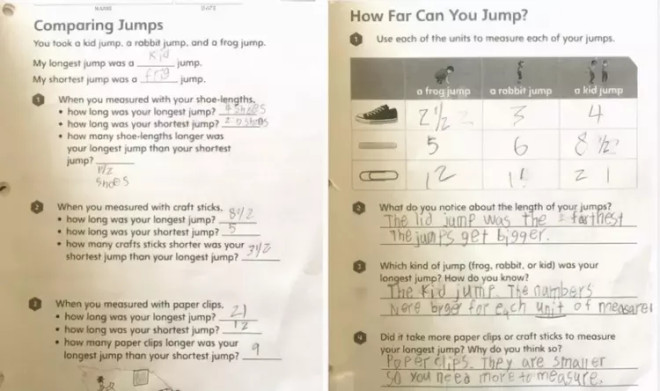 NAME DATE
Comparing Jumps
You took a kid jump, a rabbit jump, and a frog jump.
My longest jump was a kid jump.
My shortest jump was a frog jump.
1 When you measured with your shoe-lengths,
• how long was your longest jump? 4 shoes
• how long was your shortest jump? shoes
• how many shoe-lengths longer was
your longest jump than your shortest
jump?
1/2
shoes
2 When you measured with craft sticks,
• how long was your longest jump? 8 1/2
• how long was your shortest jump? 5
• how many crafts sticks shorter was your
shortest jump than your longest jump? 3 1/2
3 When you measured with paper clips,
• how long was your longest jump? 21
• how long was your shortest jump? 12
• how many paper clips longer was your
longest jump than your shortest jump? 9
How Far Can You Jump?
1 Use each of the units to measure each of your jumps.
a frog jump a rabbit jump a kid jump
2 1/2 3 4
5 6 8 1/2
12 21
2 What do you notice about the length of your jumps?
The kid jump was the farthest
The jumps get bigger.
3 Which kind of jump (frog, rabbit, or kid) was your
longest jump? How do you know?
The Kid jump. The numbers
were for each unit of
4 Did it take more paper clips or craft sticks to measure
your longest jump? Why do you think so?
Paper clips. They are smaller
so you need more to measure.